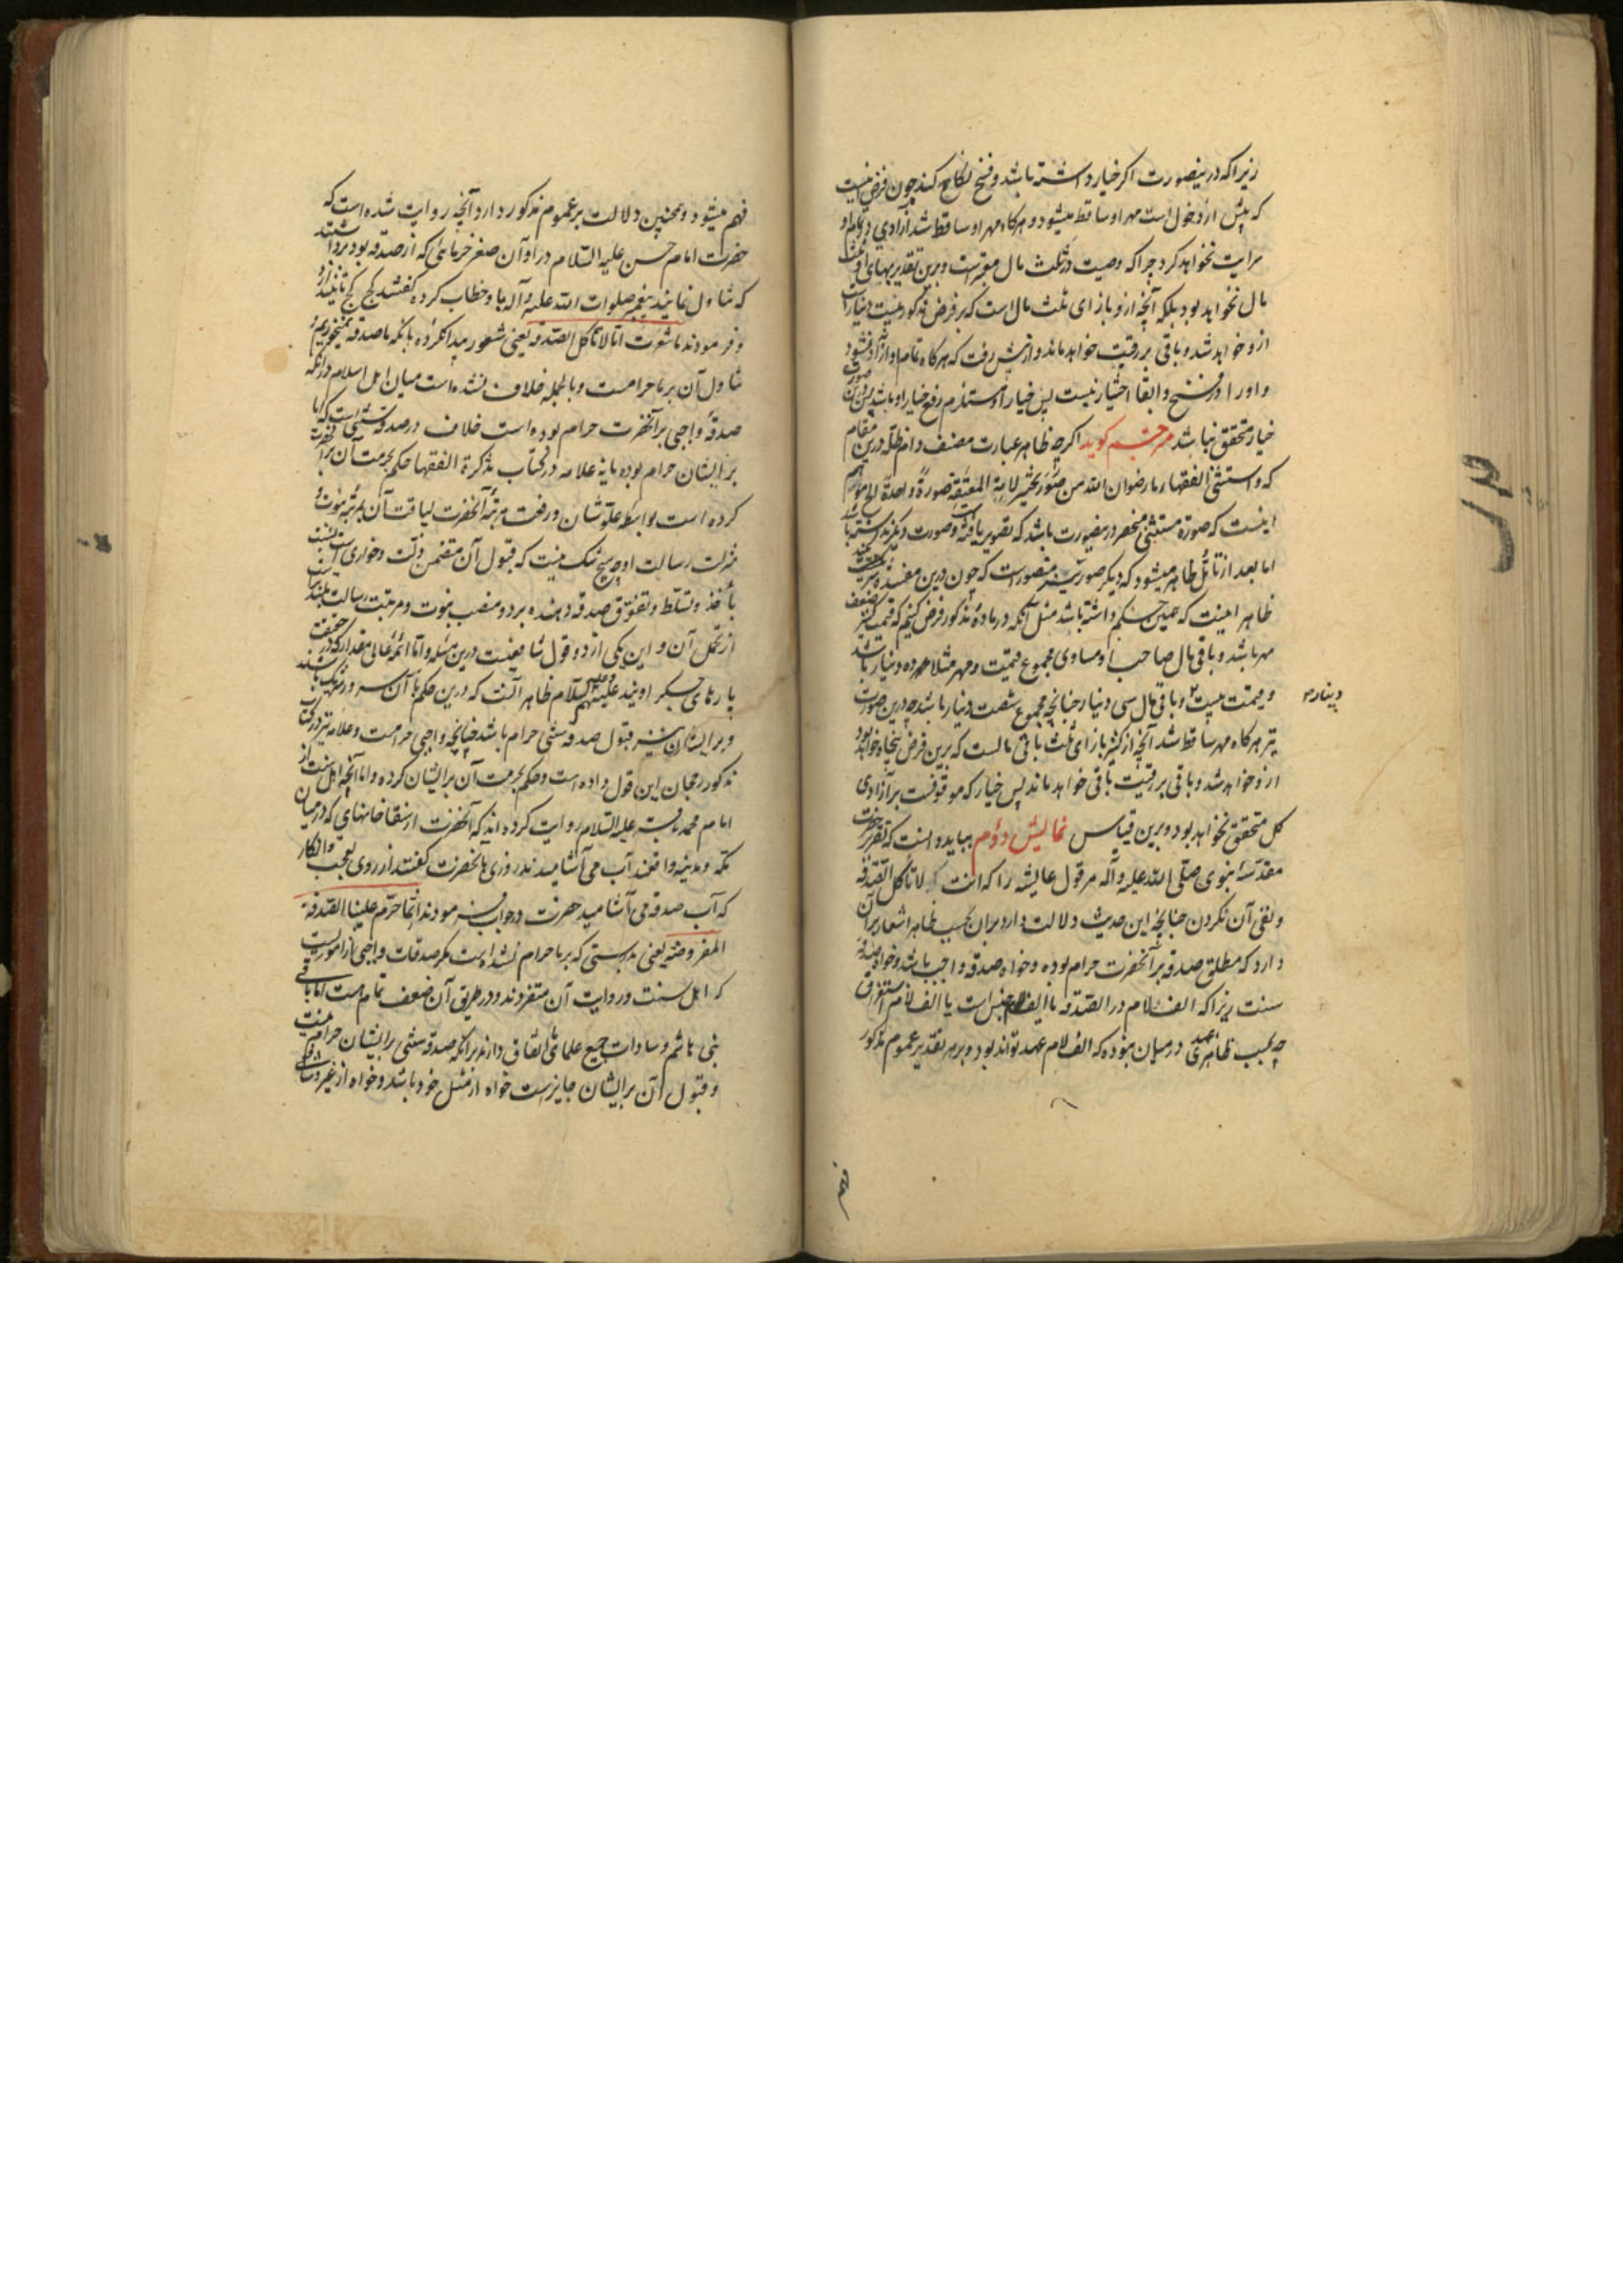 زیرا که درینصورت اکر خیار داشته باشد و فسخ نکاح کند چون فرض اینست
که پیش از دخول است مهر او ساقط میشود و هرکاه مهر او ساقط شد آزادی در تمام او
سرایت نخواهد کرد چرا که وصیت در ثلث مال معتبرست و برین تقدیر بهای او ثلث
مال نخواهد بود بلکه آنچه ازو بازای ثلث مال است که بر فرض مذکور بیست دینار است
ازو خواهد شد و باقی بر رقیت خواهد ماند و از پیش رفت که هرکاه تمام او آزاد نشود
و او را در فسخ و ابقا اختیار نیست پس خیار او مستلزم رفع خیار او باشد پس درین صورت
خیار متحقق نباشد مترجم کوید اکرچه ظاهر عبارت مصنف دام ظله درین مقام
که و استثنی الفقهاء رضوان الله من صور تخییر الامة المعتقة صورة واحدة
اینست که صورة مستثنی منحصر درینصورت باشد که تصویر یافته و صورت دیکر نداشته باشد
اما بعد از تامل ظاهر میشود که دیکر صور نیز متصور است که چون درین مفسده
ظاهر اینست که همین حکم داشته باشد مثل آنکه در ماده مذکور فرض کنیم که قیمت کنیز ضعف
مهر باشد و باقی مال صاحب او مساوی مجموع قیمت و مهر مثلا مهر ده دینار باشد
و قیمت بیست و باقی مال سی دینار چنانچه مجموع شصت دینار باشد چه درین صورت
دینار
نیز هرکاه مهر ساقط شد آنچه از کنیز بازای ثلث باقی مالست که برین فرض پنجاه خواهد بود
ازو خواهد شد و باقی بر رقیت باقی خواهد ماند پس خیار که موقوفست بر آزادی
کل متحقق نخواهد بود و برین قیاس نمایش دوم بباید دانست که تقریر حضرت
مقدسه نبوی صلی الله علیه و آله مر قول عایشه را که انت لا تاکل الصدقة
و نفی آن نکردن چنانچه این حدیث دلالت دارد بر آن بحسب ظاهر اشعار بر آن
دارد که مطلق صدقه بر آنحضرت حرام بوده و خواه صدقه واجب باشد و خواه صدقه
سنت زیرا که الف لام در الصدقة یا الف لام جنس است یا الف لام استغراق
چه بحسب ظاهر عهدی در میان نبوده که الف لام عهد تواند بود و بر هر تقدیر عموم مذکور
فهم
فهم میشود و همچنین دلالت بر عموم مذکور دارد آنچه روایت شده است که
حضرت امام حسن علیه السلام در اوان صغر خرمائی که از صدقه بود برداشتند
که تناول نمایند پیغمبر صلوات الله علیه و آله باو خطاب کرده کفتند کخ کخ
و فرمودند ما شعرت انا لا ناکل الصدقة یعنی شعور پیدا نکرده بآنکه ما صدقه نمیخوریم و
تناول آن بر ما حرامست و بالجمله خلاف نشده است میان اهل اسلام در آنکه
صدقه واجبی بر آنحضرت حرام بوده است خلاف در صدقه سنتی است که آیا
بر ایشان حرام بوده یا نه علامه در کتاب تذکرة الفقها حکم بحرمت آن بر آنحضرت
کرده است بواسطه علو شان و رفعت مرتبه آنحضرت لیاقت آن بمرتبه نبوت و
منزلت رسالت او چه هیچ شک نیست که قبول آن متضمن ذلت و خواریست نسبت
باخذ و تسلط و تفوق صدقه دهنده برد و منصب نبوت و مرتبت رسالت بلندتر است
از تحمل آن و این یکی از دو قول شافعیست درین مسئله و اما ائمه عالی مقدار که در حقیقت
پارهای جکر اویند علیه و علیهم السلام ظاهر آنست که درین حکم با آن سرور شریک باشند
و بر ایشان نیز قبول صدقه سنتی حرام باشد چنانچه واجبی حرامست و علامه نیز در کتاب
مذکور رجحان این قول داده است و حکم بحرمت آن بر ایشان کرده و اما آنچه اهل سنت از
امام محمد باقر علیه السلام روایت کرده اند که آنحضرت از سقاخانهای که در میان
مکه و مدینه واقعند آب می آشامیدند روزی بآنحضرت کفتند از روی تعجب و انکار
که آب صدقه می آشامید حضرت در جواب فرمودند انما حرم علینا الصدقة
المفروضة یعنی بدرستی که بر ما حرام نشده است مکر صدقات واجبی از اموریست
که اهل سنت در روایت آن متفردند و در طریق آن ضعف تمام هست اما باقی
بنی هاشم و سادات جمیع علمای اتفاق دارند بر آنکه صدقه سنتی بر ایشان حرام نیست
و قبول آن بر ایشان جایزست خواه از مثل خود باشد و خواه از غیر و شافعی